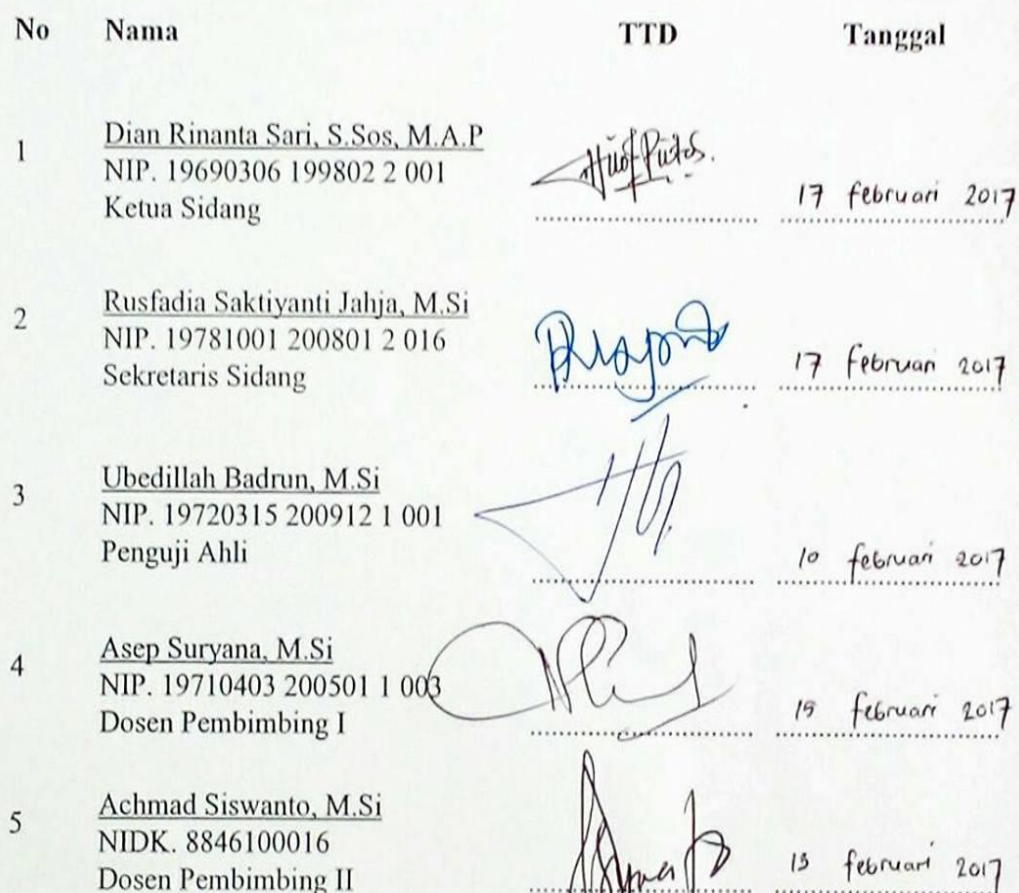 No Nama TTD Tanggal
1 Dian Rinanta Sari, S.Sos, M.A.P
NIP. 19690306 199802 2 001
Ketua Sidang 17 februari 2017
2 Rusfadia Saktiyanti Jahja, M.Si
NIP. 19781001 200801 2 016
Sekretaris Sidang 17 februari 2017
3 Ubedillah Badrun, M.Si
NIP. 19720315 200912 1 001
Penguji Ahli 10 februari 2017
4 Asep Suryana, M.Si
NIP. 19710403 200501 1 003
Dosen Pembimbing I februari 2017
5 Achmad Siswanto, M.Si
NIDK. 8846100016
Dosen Pembimbing II 13 februari 2017